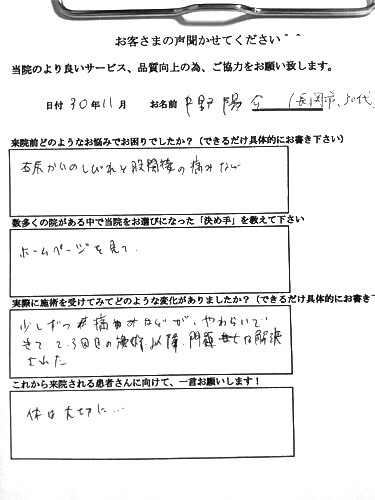 お客さまの声聞かせてください＾＾
当院のより良いサービス、品質向上の為、ご協力をお願い致します。
日付 30年11月 お名前 中野 陽介 (長岡市、50代)
来院前どのようなお悩みでお困りでしたか？（できるだけ具体的にお書き下さい）
右肩から のしびれと股関接の痛みなど
数多くの院がある中で当院をお選びになった「決め手」を教えて下さい
ホームページを見て、
実際に施術を受けてみてどのような変化がありましたか？（できるだけ具体的にお書き下
少しずつ 痛みなどが、やわらいで
きて 2、3回目の施術以降、問題なく解決
された
これから来院される患者さんに向けて、一言お願いします！
体は大切に…